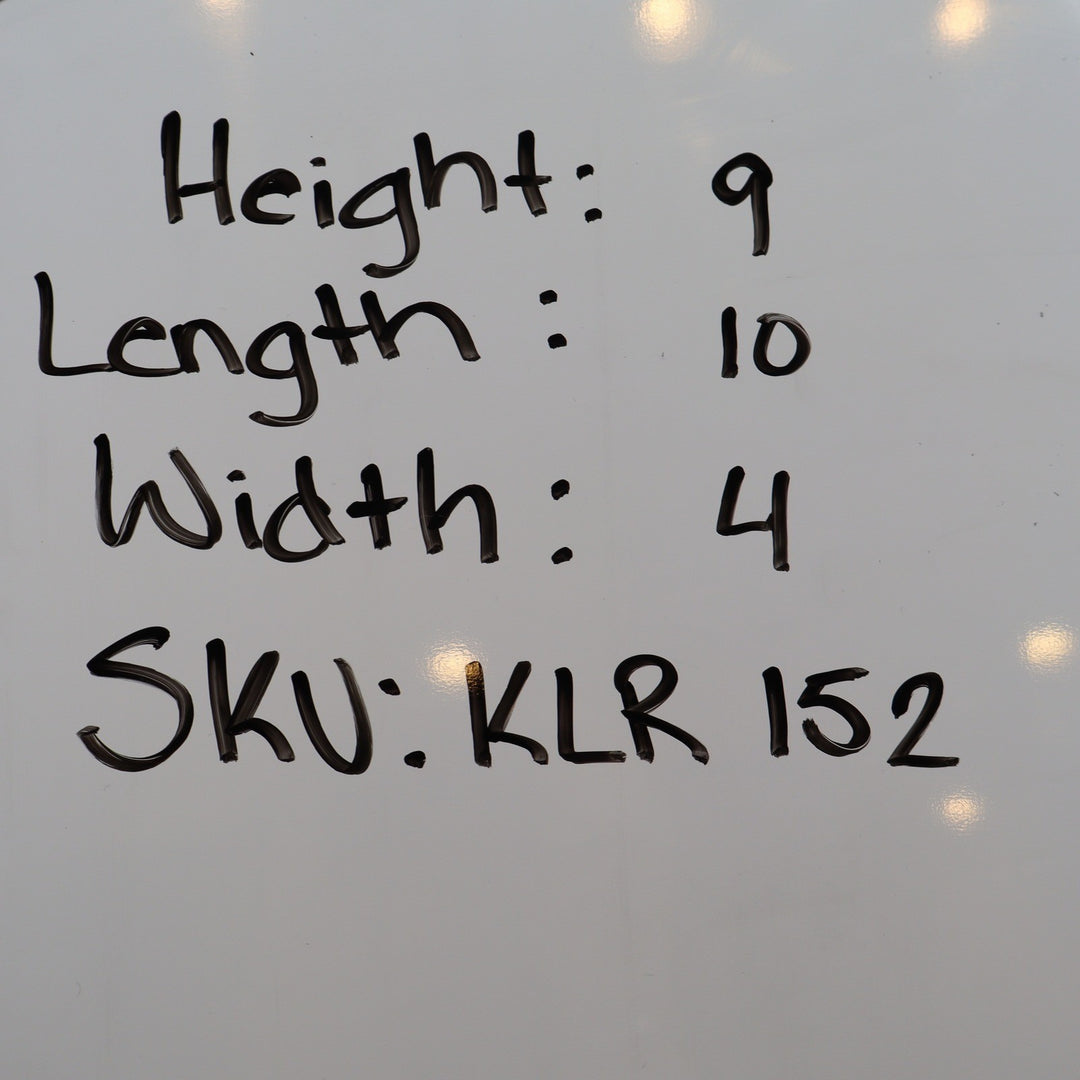 Height: 9
Length: 10
Width: 4
SKU: KLR 152